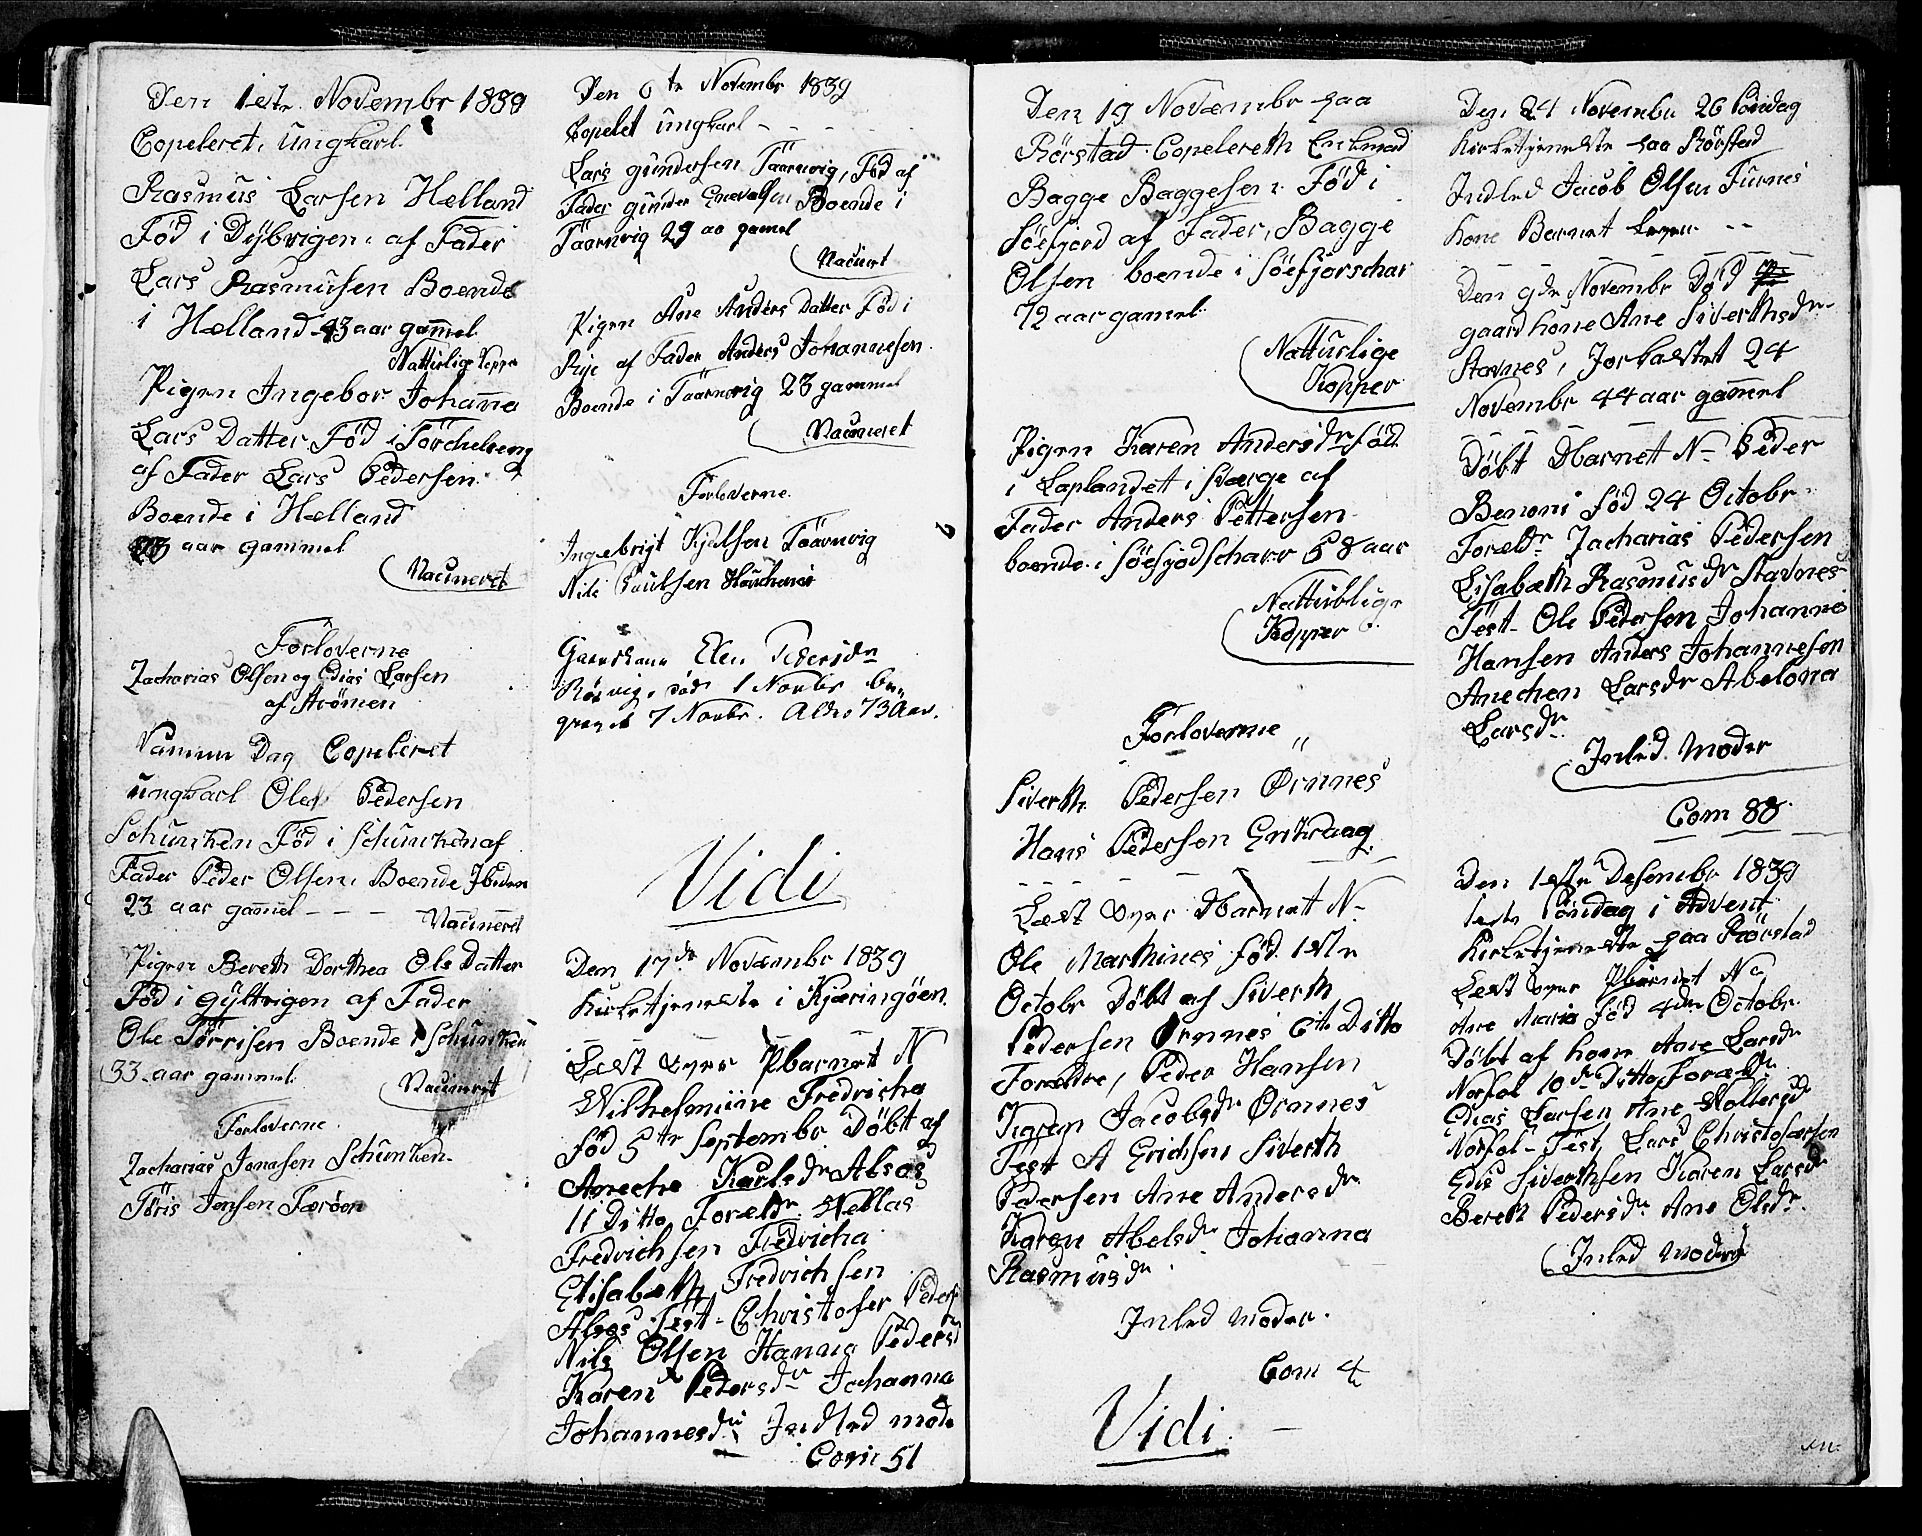 Den 1ste Novembr 1839
Copeleret, Ungkarl
Rasmus Larsen Hælland
Fød i Dÿbvigen. af Fader
Lars Rasmusen Boende
i Hælland 43 aar gamel
Natturlige Kopper
Pigen Ingebor Johanna
Lars Datter Fød i
af Fader Lars Pedersen
Boende i Hælland
aar gammel
Vacineret
Forloverne
Zacharias Olsen og Edias Larsen
af Strömen
Samme Dag Copeleret
ungkarl Ole Pedersen
Schunken Fød i Schunken af
Fader Peder Olsen, Boende Ibiden
23 aar gamel - - - Vacineret
Pigen Bereth Dorthea Ols Datter
Fød i Gÿltvigen af Fader
Ole Törrisen Boende i Schunken
33 aar gammel.
Vacineret
Forloverne
Zacharias Jonasen Schunken
Töris Jensen Færöen
Den 6te Novembr 1839
Copelet ungkarl - - - -
Lars Gundersen Taarnvig, Fød af
Fader Gunder Enevalsen Boende i
Taarnvig 29 aa gamel
Vacinet
Pigen Ane Anders Datter Fød i
Rije af Fader Anders Johannesen
Boende i Taarnvig 23 gammel
Vacineret
Forloverne
Ingebrigt Kjelsen Taarnvig
Nils Paulsen
Elen Pedersdr
Rösvig. död 1 Novbr be-
gravet 7 Novbr. Alder 73 Aar.
Vidi
Den 17de Novæmbr 1839
Kirketjeneste i Kjæringöen
Læst over Pbarnet N
Wilhelmine Fredricha
fød 5te Septembr Döbt af
Aneche Karlsdr Alsos
11 Ditto Foræld Neklas
Fredrichsen Fredricha
Elisabeth Fredrichsen
Alsos Test - Christofer Peders
Nils Olsen Hanna Pedersd
Karen Pedersdr Johanna
Johannesdr Indled mode
Com 51
Den 19 Novæmbr paa
Rörstad Copelereth Enkmad
Bagge Baggesen Fød i
Söefjord af Fader, Bagge
Olsen boende i Söefjorschar
72 aar gamel
Natturlige
Kopper
Pigen Karen Andersdr fød
i Laplandett i Sværge af
Fader Anders Pettersen
boende i Söefjodscharr 58 aar
Natturlige
Kopper
Forloverne
Siverth Pedersen Ørnnes
Hans Pedersen Enkraag
Læst over Dbarnett N-
Ole Marthines fød 1ste
Octobr Döbt af Siverth
Pedersen Ørnnes 6te Ditto
Forældre, Peder Hansen
Karen Jacobsdr Ørnnes
Test A Erichsen Siverth
Pedersen Ane Andersdr
Karen Abelsdr Johanna
Rasmusdr
Inled moder.
Com 4
Vidi
Den 24 Novembr 26 Söndag
Kirketjeneste paa Rörstad
Indled Jacob Olsen Furnes
kone Barnet
Den 9de Novembr Död
gaardkone Ane Siverthsdr
Stavnes, Jorkastet 24
Novembr 44 aar gamel
Döbt Dbarnet N- Peder
Benoni fød 24 Octobr
Forældr Zacharias Pedersen
Lisabæth Rasmusdr Stavnes
Test - Ole Pedersen Johannes
Hansen Anders Johannesen
Anechen Larsdr Abelona
Larsdr
Inled Moder
Com 88
Den 1ste Desembr 1839
1ste Söndag i Advent
Kirketjeneste paa Rörstad
Læst over Pbarnet N
Ane Maria fød 4de Octobr
Döbt af kone Ane Larsdr
Norfol 10de Ditto Forældr
Edias Larsen Ane Holtersdr
Norfol - Test Lars Christofersen
Edis Siverthsen Karen Larsdr
Bereth Pedersdr Ane Olsdr
Inled moder